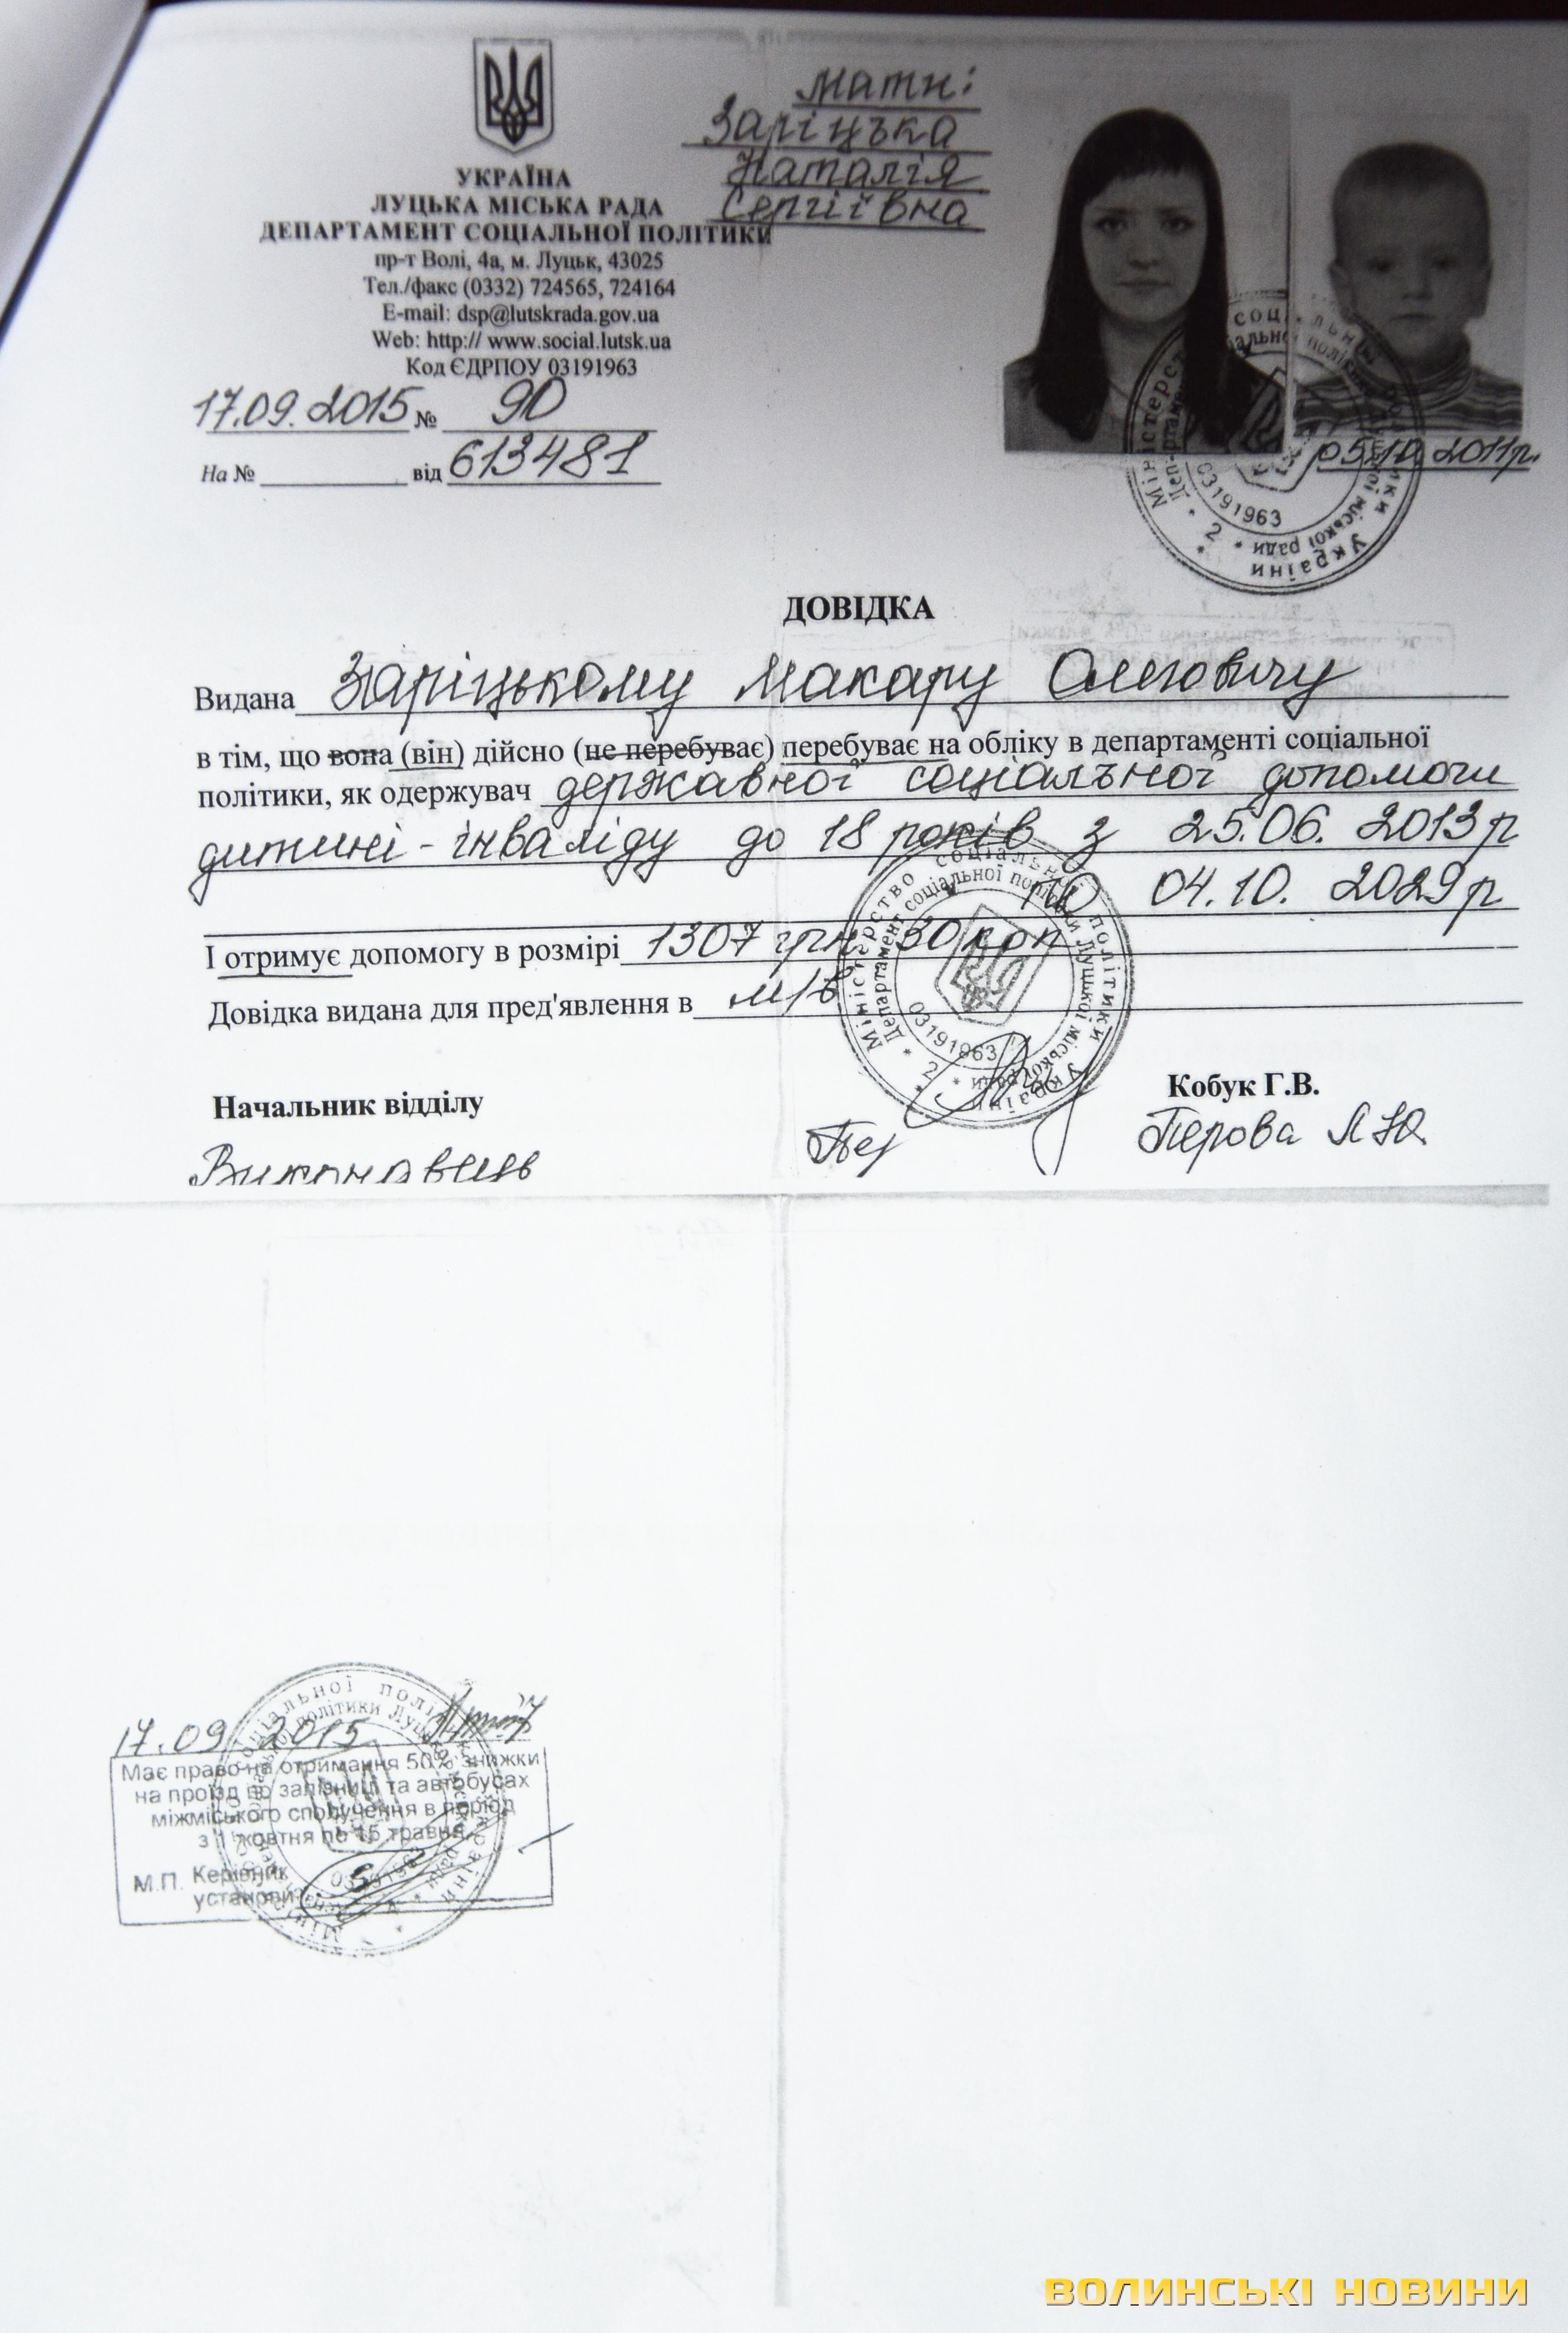 УКРАЇНА
ЛУЦЬКА МІСЬКА РАДА
ДЕПАРТАМЕНТ СОЦІАЛЬНОЇ ПОЛІТИКИ
пр-т Волі, 4а, м. Луцьк, 43025
Тел./факс (0332) 724565, 724164
E-mail: dsp@lutskrada.gov.ua
Web: http:// www.social.lutsk.ua
Код ЄДРПОУ 03191963
17.09.2015 № 90
На № від 613481
мати:
Заріцька
Наталія
Сергіївна
05.10.2011р.
03191963
* 2 *
України
ДОВІДКА
Видана Заріцькому Макару Олеговичу
в тім, що вона (він) дійсно (не перебуває) перебуває на обліку в департаменті соціальної
політики, як одержувач державної соціальної допомоги
дитині-інваліду до 18 років з 25.06. 2013р
по 04.10. 2029р
І отримує допомогу в розмірі 1307 грн 30 коп
Довідка видана для пред'явлення в м/в
Міністерство соціальної політики України
Департамент соціальної політики Луцької міської ради
03191963
* 2 *
Начальник відділу Кобук Г.В.
Виконавець Перова Л Ю
17.09 2015
Має право на отримання 50% знижки
на проїзд по залізниці та автобусах
міжміського сполучення в період
з 1 жовтня по 15 травня.
М.П. Керівник
установи
ВОЛИНСЬКІ НОВИНИ